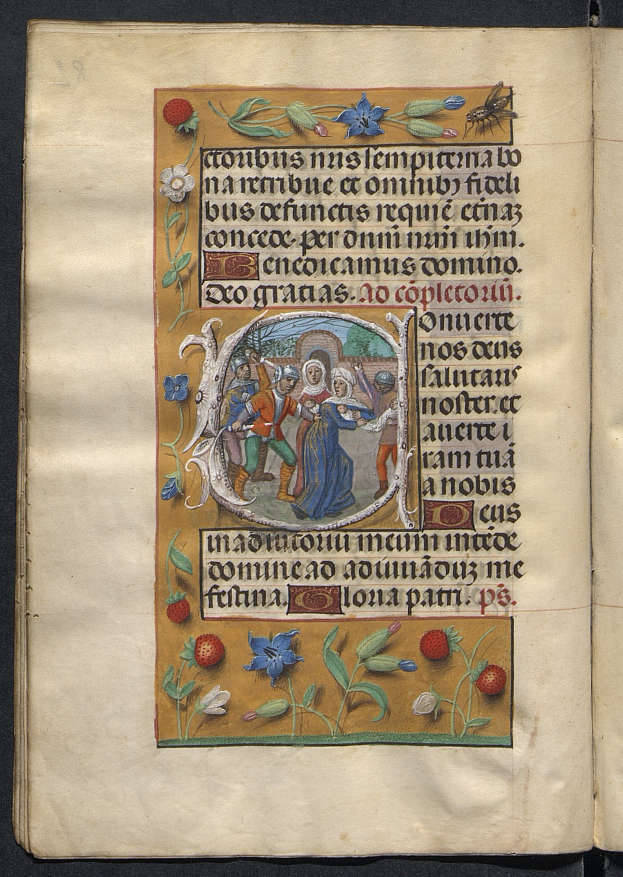 ctoribus nr̄is sempiterna bo
na retribue et omnibꝫ fideli
bus defunctis requiē etn̄aꝫ
concede. per dnm̄ nrm̄ ihm̄.
Benedicamus domino.
Deo gratias. Ad cōpletoriū.
Conuerte
nos deus
salutaris
noster. et
auerte i
ram tuā
a nobis
Deus
in adiutoriū meum intēde
domine ad adiuuāduꝫ me
festina. Gloria patri. ps̄.